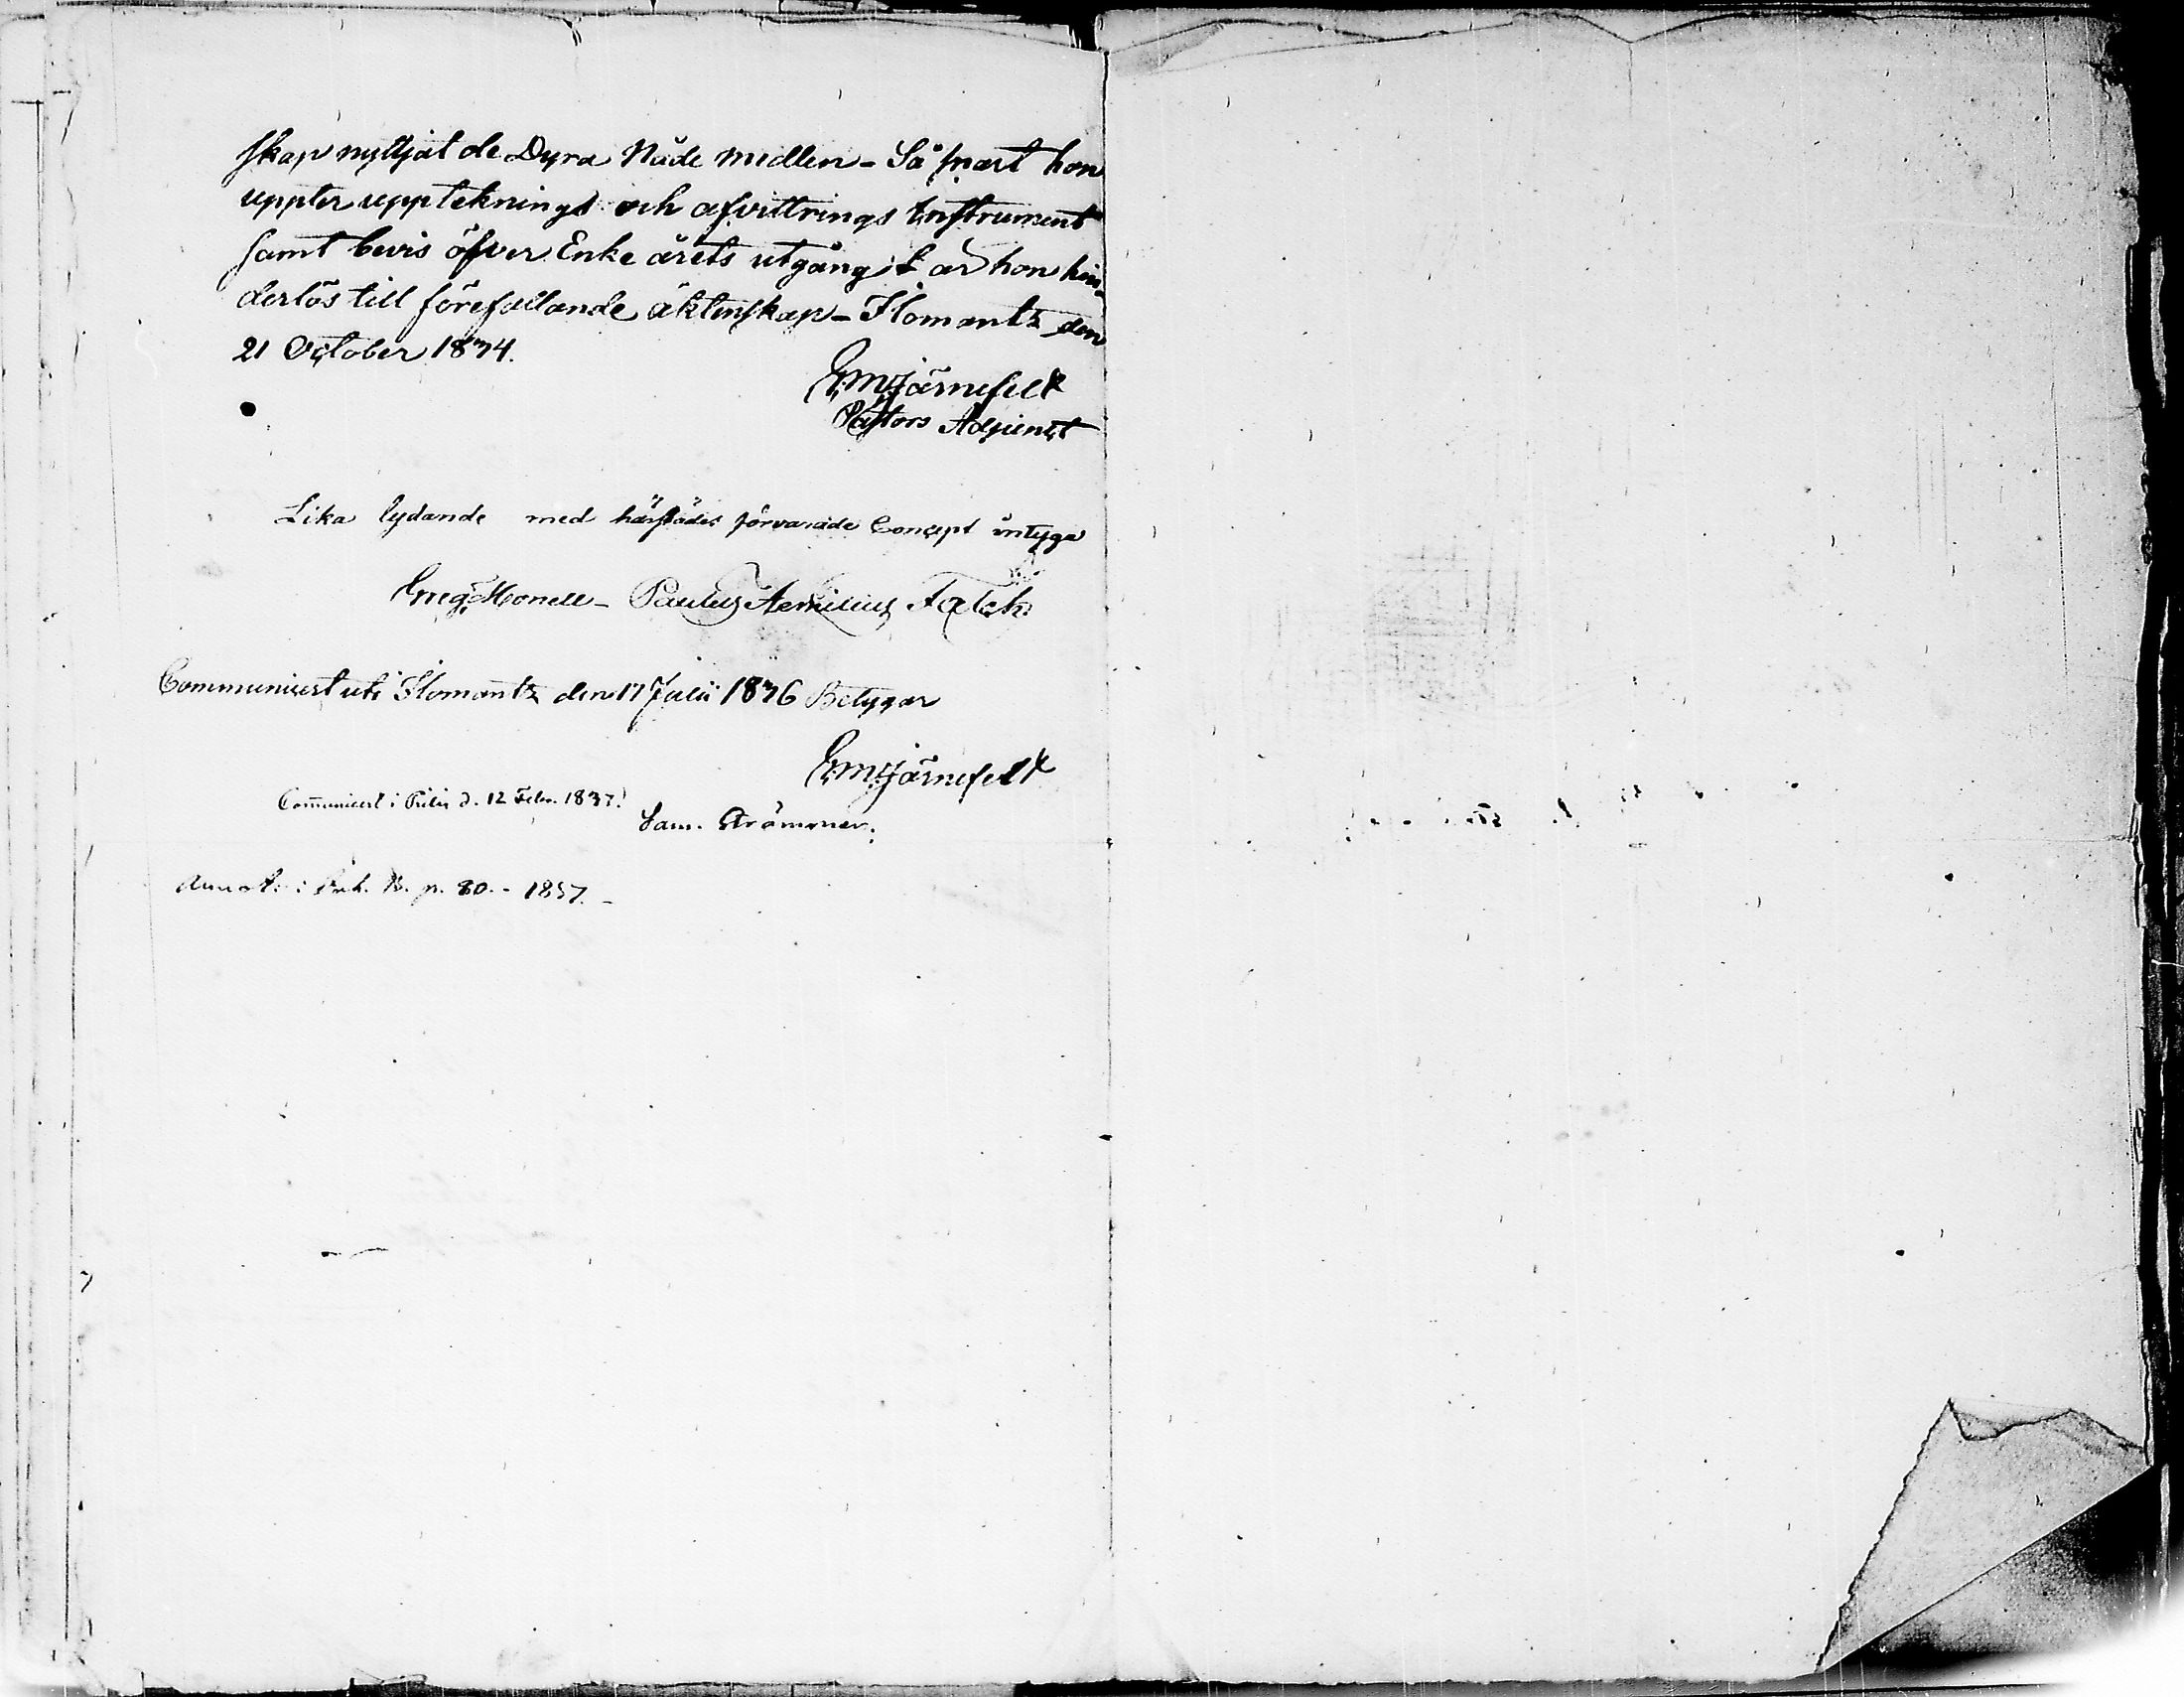 skap nyttjat de Dyra Nåde medlen - Så snart hon
uppter uppteknings och afvittrings Instrument
samt bevis öfver Enke årets utgång, är hon hin-
derlös till förefallande äktenskap - Ilomantz den
21 October 1834.
Järnefelt
Pastors Adjunct
Lika lydande med härstädes förvarade Concept intyga
Greg Monell - Paulus Aemilius Falck
Communicert uti Ilomantz den 17 Julii 1836 Betygar
Järnefelt
Com̃unicert i d. 12 Febr. 1837.
Sam. Strömmer.
Annot. i B. p. 80. - 1837. -